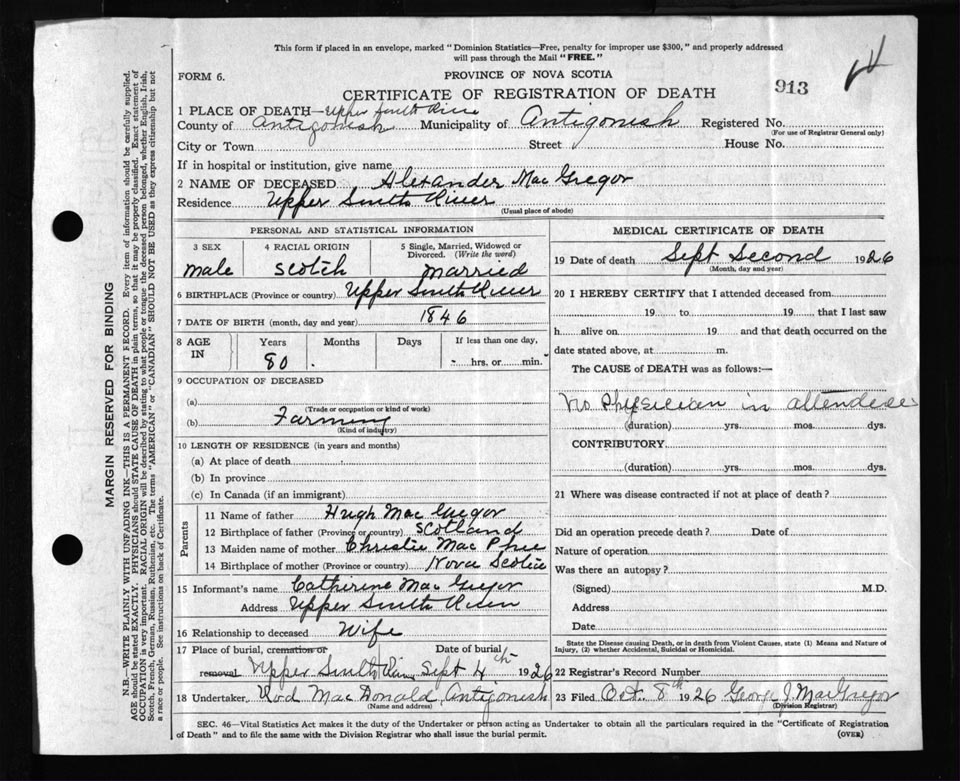 This form if placed in an envelope, marked "Dominion Statistics—Free, penalty for improper use $300," and properly addressed
will pass through the Mail "FREE."
FORM 6.
PROVINCE OF NOVA SCOTIA
913
CERTIFICATE OF REGISTRATION OF DEATH
1 PLACE OF DEATH—Upper South River
County of Antigonish Municipality of Antigonish Registered No.
(For use of Registrar General only)
City or Town Street House No.
If in hospital or institution, give name
2 NAME OF DECEASED Alexander Mac Gregor
Residence Upper Smith River
(Usual place of abode)
PERSONAL AND STATISTICAL INFORMATION
3 SEX 4 RACIAL ORIGIN 5 Single, Married, Widowed or
Divorced. (Write the word)
male Scotch married
6 BIRTHPLACE (Province or country) Upper Smith River
7 DATE OF BIRTH (month, day and year) 1846
8 AGE IN Years Months Days If less than one day,
80 hrs. or min.
9 OCCUPATION OF DECEASED
(a)
(Trade or occupation or kind of work)
(b) Farming
(Kind of industry)
10 LENGTH OF RESIDENCE (in years and months)
(a) At place of death
(b) In province
(c) In Canada (if an immigrant)
Parents
11 Name of father Hugh Mac Gregor
12 Birthplace of father (Province or country) Scotland
13 Maiden name of mother Christie Mac Phie
14 Birthplace of mother (Province or country) Nova Scotia
15 Informant's name Catherine Mac Gregor
Address Upper Smith River
16 Relationship to deceased Wife
17 Place of burial, cremation or Date of burial
removal Upper Smith River Sept 4th 1926
18 Undertaker, Rod Mac Donald Antigonish
(Name and address)
MEDICAL CERTIFICATE OF DEATH
19 Date of death Sept Second 1926
(Month, day and year)
20 I HEREBY CERTIFY that I attended deceased from
19 to 19 that I last saw
h alive on 19 and that death occurred on the
date stated above, at m.
The CAUSE of DEATH was as follows:—
No Physician in attendence
(duration) yrs. mos. dys.
CONTRIBUTORY
(duration) yrs. mos. dys.
21 Where was disease contracted if not at place of death?
Did an operation precede death? Date of
Nature of operation
Was there an autopsy?
(Signed) M.D.
Address
Date
State the Disease causing Death, or in death from Violent Causes, state (1) Means and Nature of
Injury, (2) whether Accidental, Suicidal or Homicidal.
22 Registrar's Record Number
23 Filed Oct. 8th 1926 George J. MacGregor
(Division Registrar)
SEC. 46—Vital Statistics Act makes it the duty of the Undertaker or person acting as Undertaker to obtain all the particulars required in the "Certificate of Registration
of Death" and to file the same with the Division Registrar who shall issue the burial permit. (OVER)
MARGIN RESERVED FOR BINDING
N.B.—WRITE PLAINLY WITH UNFADING INK—THIS IS A PERMANENT RECORD. Every item of information should be carefully supplied.
AGE should be stated EXACTLY. PHYSICIANS should STATE CAUSE OF DEATH in plain terms, so that it may be properly classified. Exact statement of
OCCUPATION is very important. RACIAL ORIGIN will be described by stating to what people or tongue the deceased person belonged, whether English, Irish,
Scotch, French, German, Russian, Ruthenian, etc. The terms "AMERICAN" or "CANADIAN" SHOULD NOT BE USED as they express citizenship but not
a race or people. See instructions on back of Certificate.